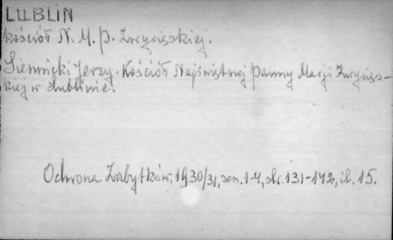 LUBLIN
Kościół N. M. P. Zwycięskiej.
Siennicki Jerzy. Kościół Najświętszej Panny Marji Zwycięs-
kiej w Lublinie.
Ochrona Zabytków, 1930/31, zesz. 1-4, str. 131-142, il. 15.